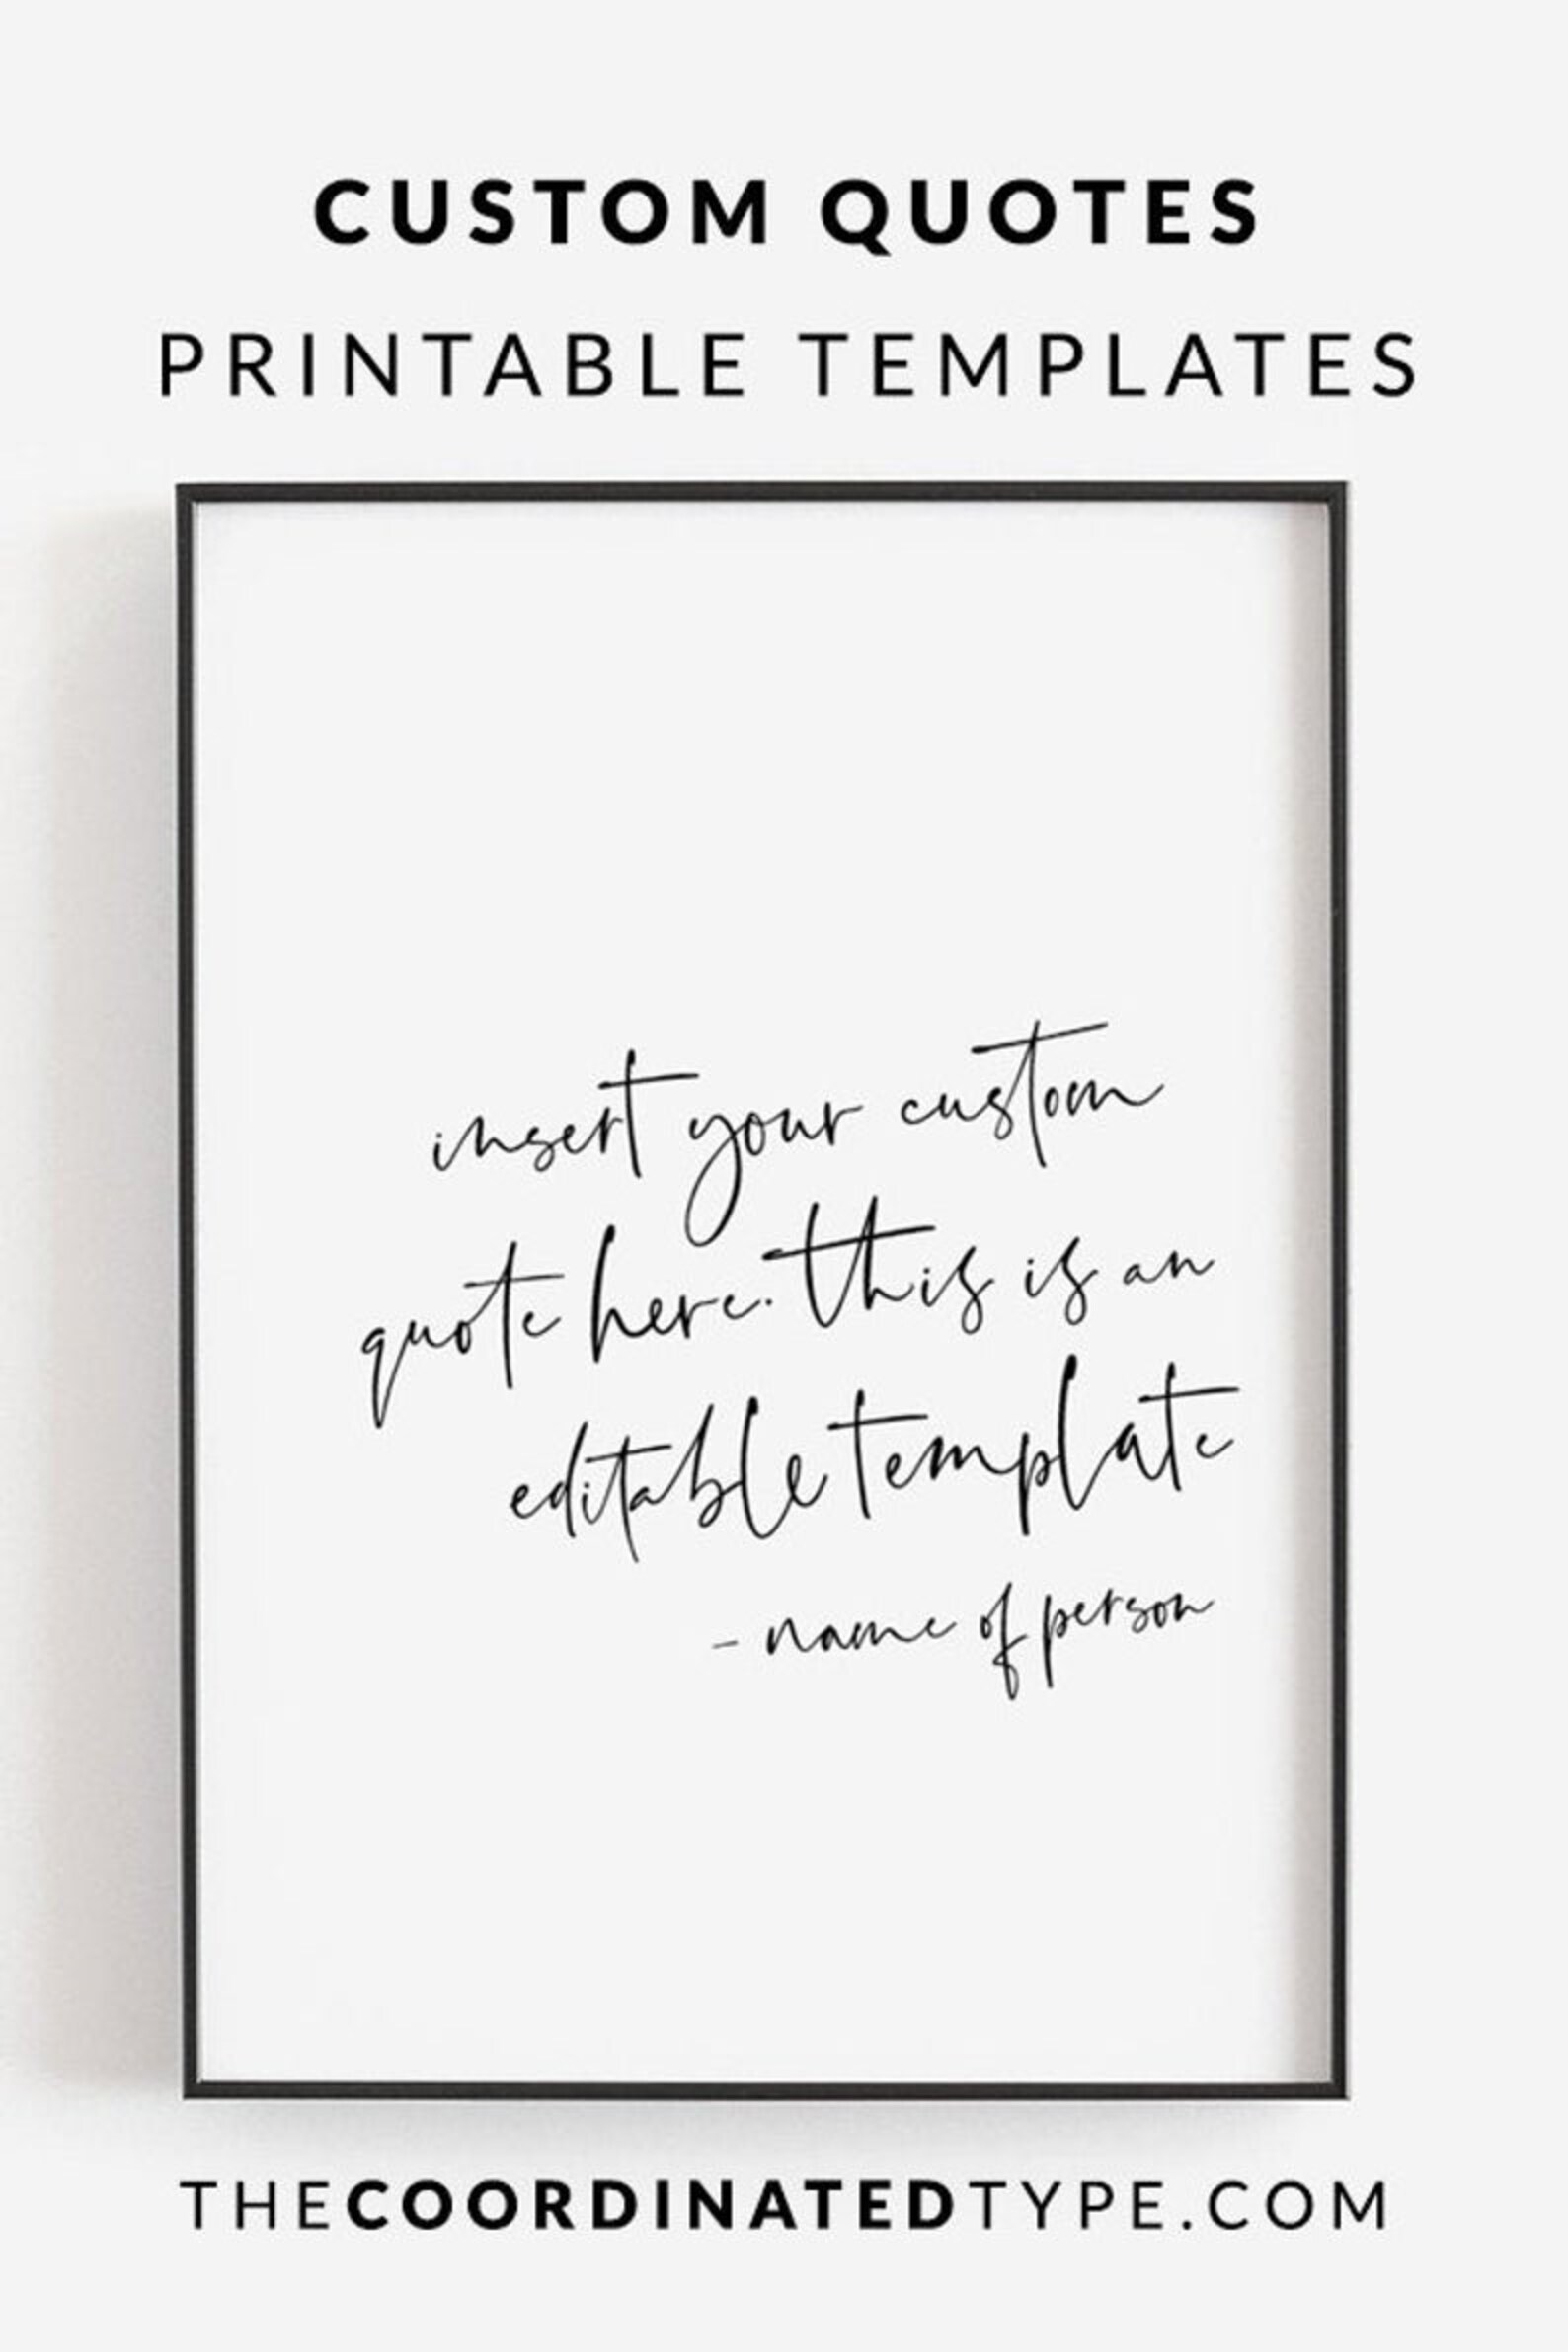 CUSTOM QUOTES
PRINTABLE TEMPLATES
insert your custom
quote here. this is an
editable template
- name of person
THECOORDINATEDTYPE.COM